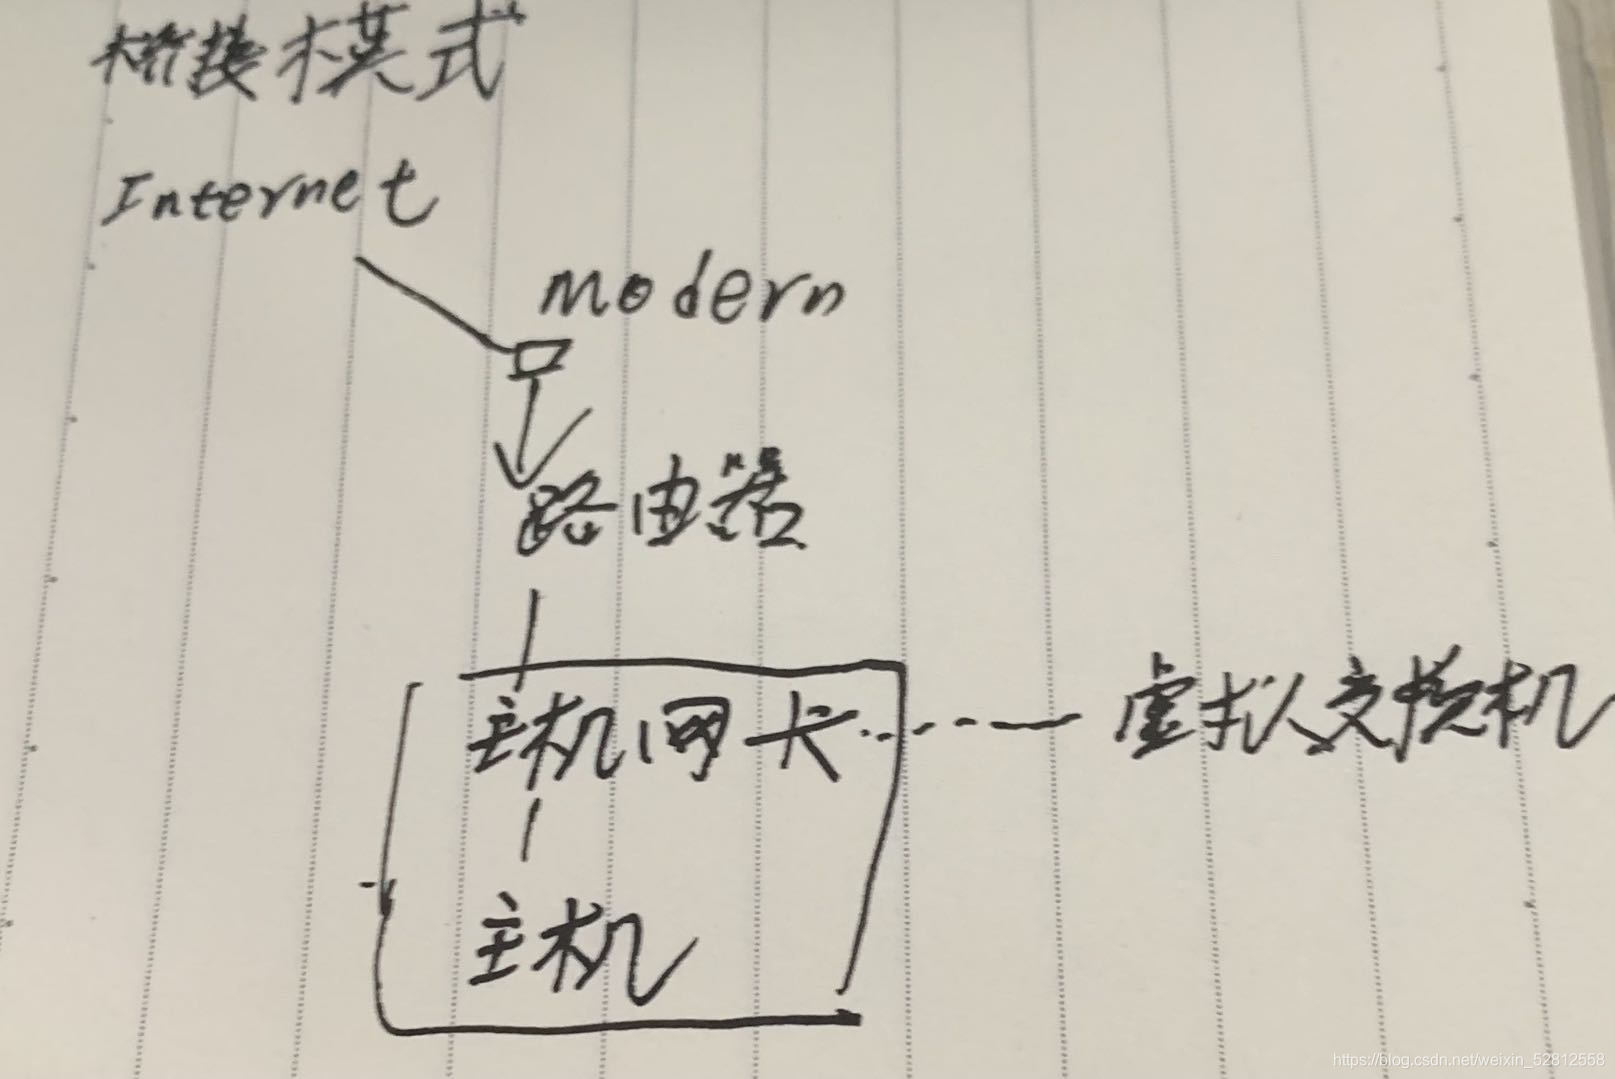 桥接模式
Internet
modern
路由器
主机网卡
虚拟交换机
主机
https://blog.csdn.net/weixin_52812558